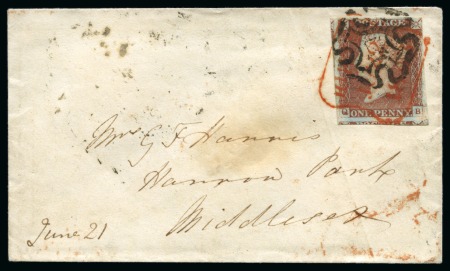 POSTAGE
ONE PENNY
B
Mrs G F Harris
Harrow Park
Middlesex
June 21